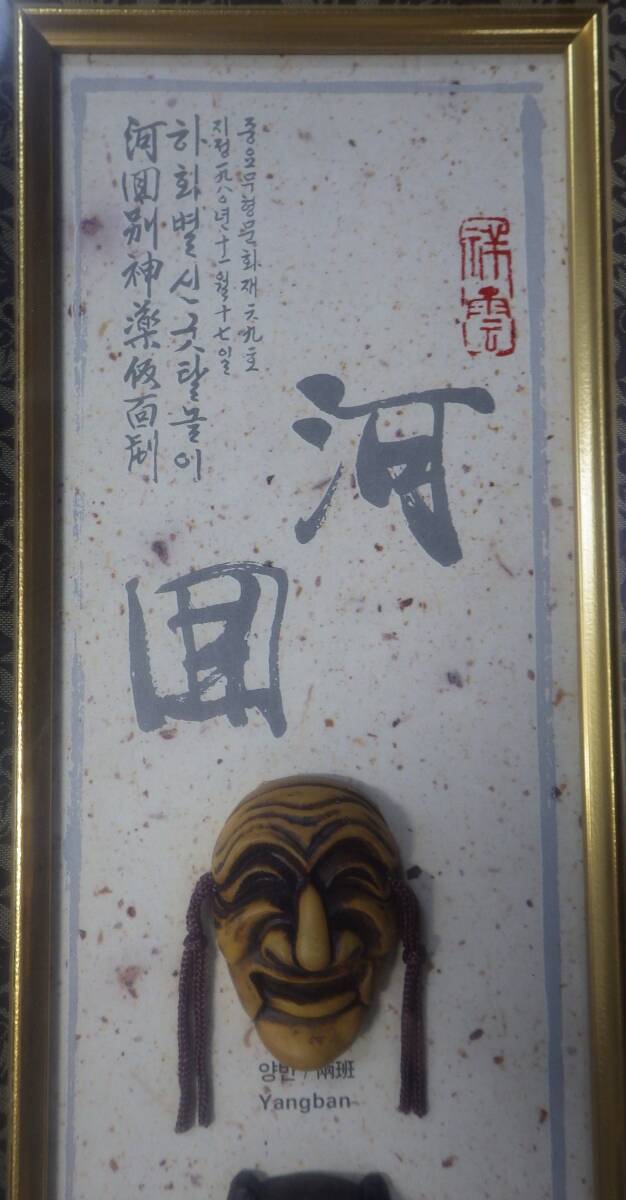 祥雲
河
回
중요무형문화재六九호
지정一九八〇년十一월十七일
하회별신굿탈놀이
河回別神薬仮面劇
양반 / 兩班
Yangban